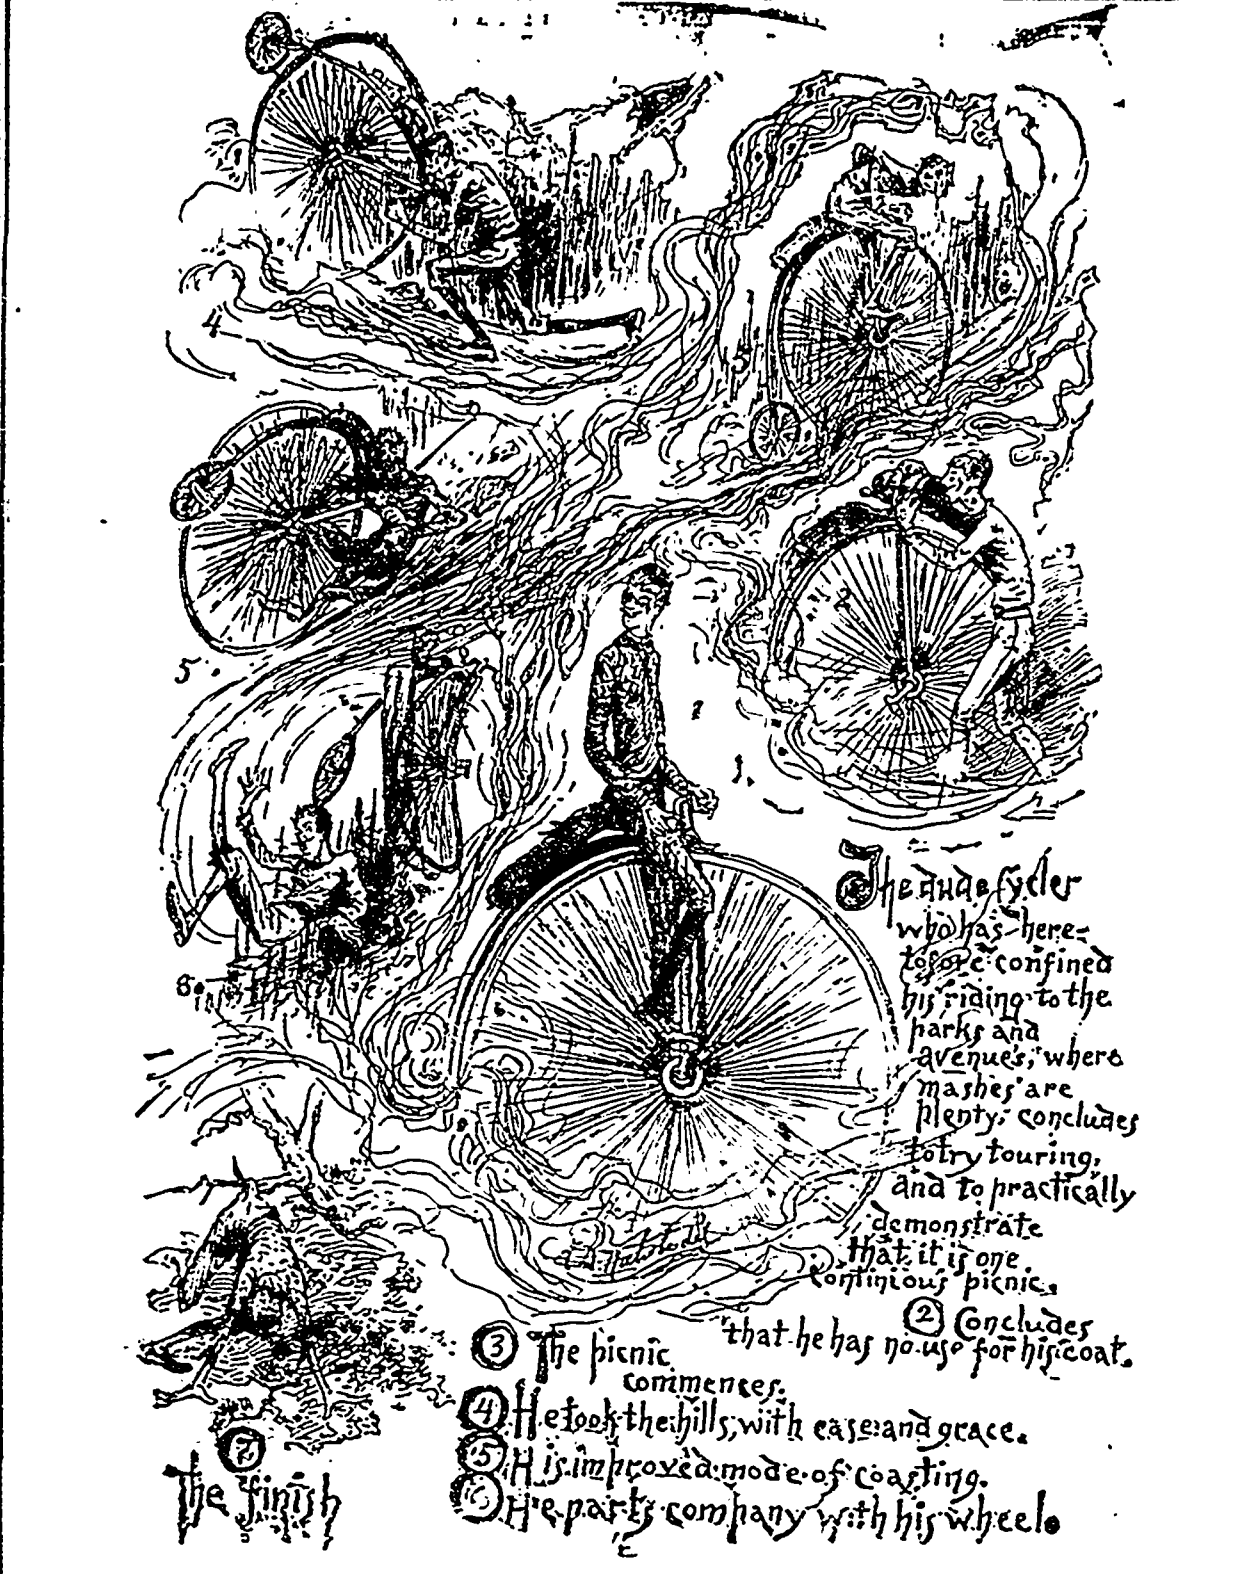 4
5.
1.
The dude fycler
who has here=
tofore confined
his riding to the
parks and
avenues, where
mashes are
plenty, concludes
to try touring,
and to practically
demonstrate
that it is one
continious picnic.
② Concludes
that he has no use for his coat.
③ The picnic
commences.
④ He took the hills, with ease and grace.
⑤ His improved mode of coasting.
⑥ He parts company with his wheel.
⑦
The finish